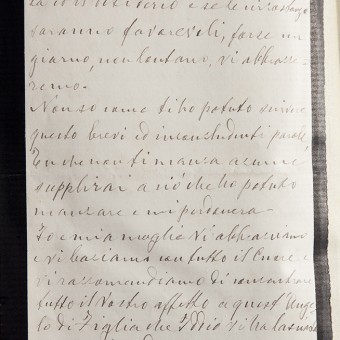 desiderio e se le circostanze
saranno favorevoli, forse un
giorno, non lontano, vi abbracce-
remo.
Non so come ti ho potuto scrivere
questo brevi ed inconcludenti parole,
Tu che non ti manca acume
supplirai a ciò che ho potuto
mancare e mi perdonerai
Io e mia moglie vi abbracciamo
e vi baciamo con tutto il Cuore e
vi raccomandiamo di concentrare
tutto il Vostro affetto a quest'Ange-
lo di Figlia che Iddio vi ha lasciato